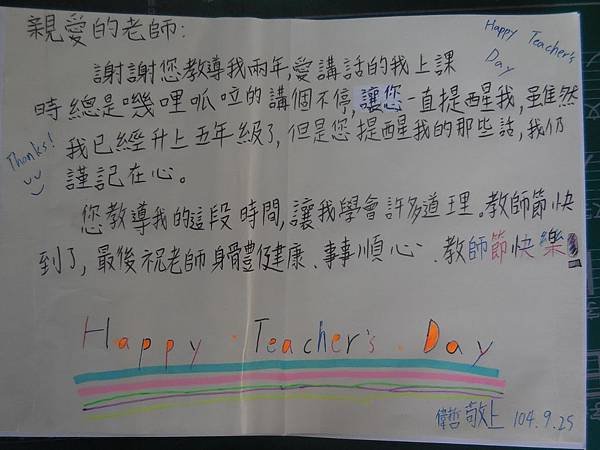 親愛的老師:
Happy Teacher's
Day
謝謝您教導我兩年,愛講話的我上課
時總是嘰哩呱啦的講個不停,讓您一直提醒我,雖然
Thanks!
我已經升上五年級了,但是您提醒我的那些話,我仍
謹記在心。
您教導我的這段時間,讓我學會許多道理。教師節快
到了,最後祝老師身體健康、事事順心、教師節快樂
Happy · Teacher's · Day
偉哲 敬上 104.9.25